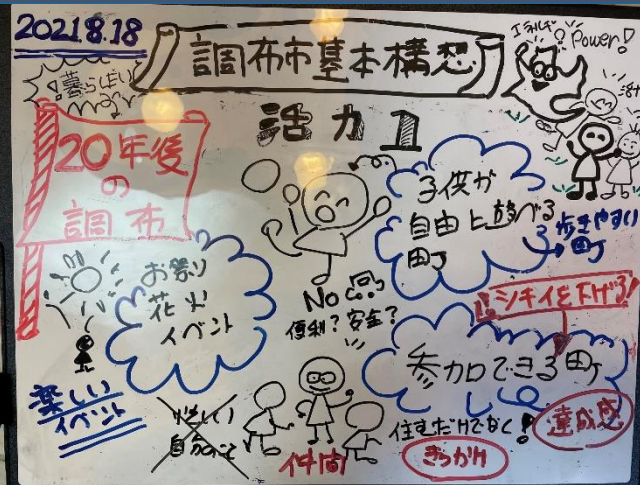 2021.8.18
調布市基本構想
Power!
暮らしたい
活力1
20年後
の
調布
子供が
自由に遊べる
町
歩きやすい
町
お祭り
花火
イベント
No
便利?安全?
シキイを下げる!
参加できる町
楽しい
イベント
忙しい
自分のこと
仲間
住むだけでなく!
きっかけ
達成感